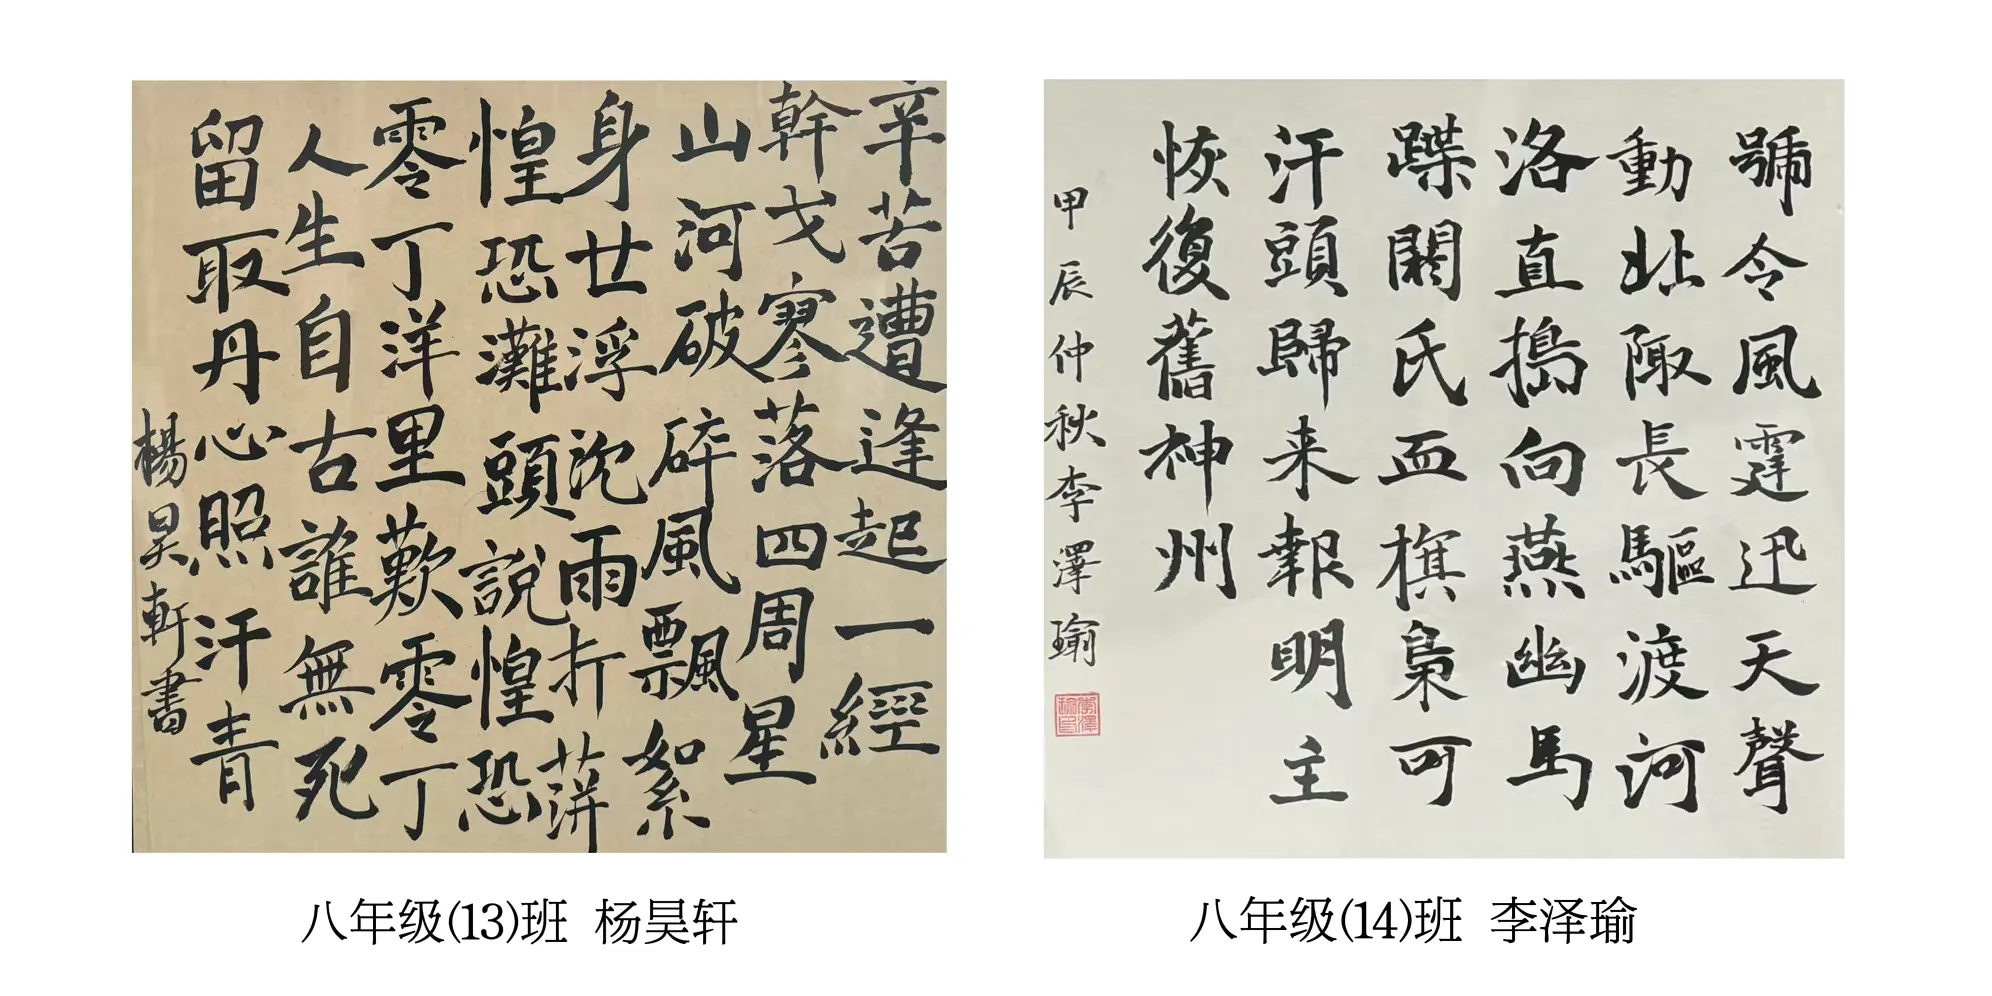 辛苦遭逢起一經
幹戈寥落四周星
山河破碎風飄絮
身世浮沈雨折萍
惶恐灘頭說惶恐
零丁洋里歎零丁
人生自古誰無死
留取丹心照汗青
楊昊軒書
八年级(13)班 杨昊轩
號令風霆迅天聲
動北陬長驅渡河
洛直搗向燕幽馬
蹀閼氏血旗梟可
汗頭歸来報明主
恢復舊神州
甲辰仲秋李澤瑜
李澤瑜印
八年级(14)班 李泽瑜